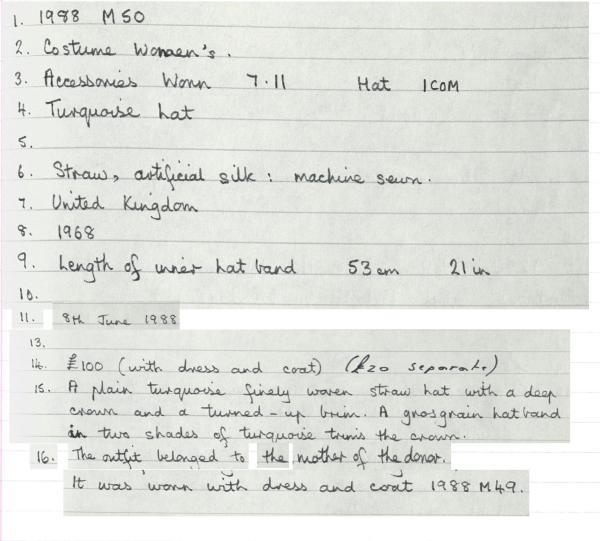 1. 1988 M50
2. Costume Women's.
3. Accessories Worn 7.11 Hat ICOM
4. Turquoise hat
5.
6. Straw, artificial silk: machine sewn.
7. United Kingdom
8. 1968
9. Length of inner hat band 53 cm 21 in
10.
11. 8th June 1988
13.
14. £100 (with dress and coat) (£20 separate)
15. A plain turquoise finely woven straw hat with a deep
crown and a turned-up brim. A grosgrain hat band
in two shades of turquoise trims the crown.
16. The outfit belonged to the mother of the donor.
It was worn with dress and coat 1988 M49.